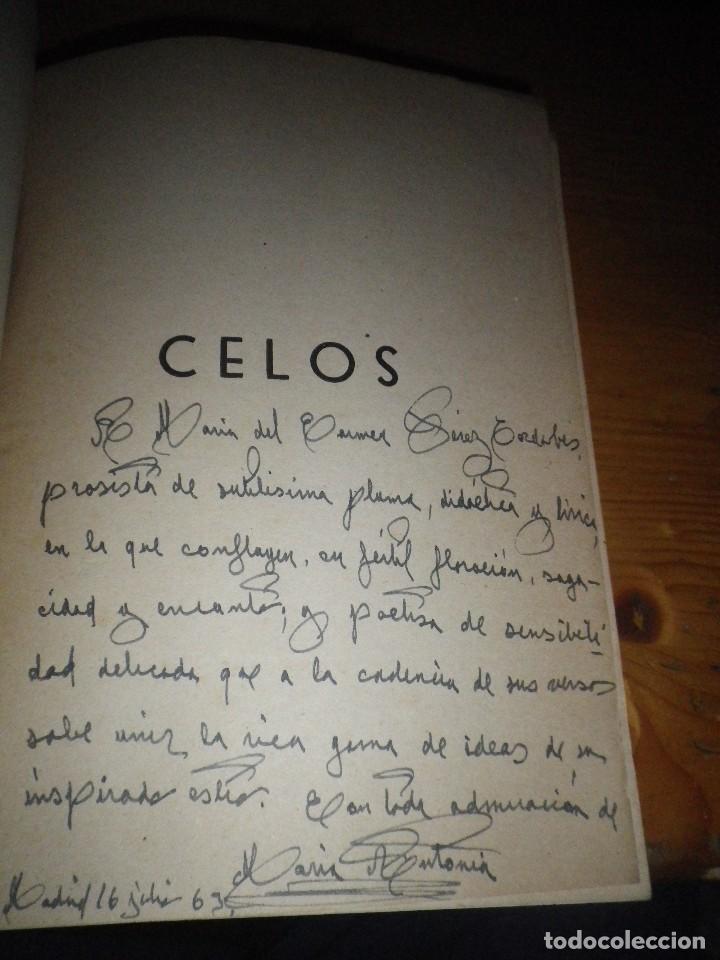 CELOS
A Maria del Carmen Pérez
prosista de sutilisima pluma, didáctica y lírica,
en la que confluyen, en fértil floración, saga-
cidad y encanto; y poetisa de sensibili
dad delicada que a la cadencia de sus versos
sabe unir la rica gama de ideas de su
inspirado estro. Con toda admiración de
Maria Antonia
Madrid 16 julio 63.
todocoleccion